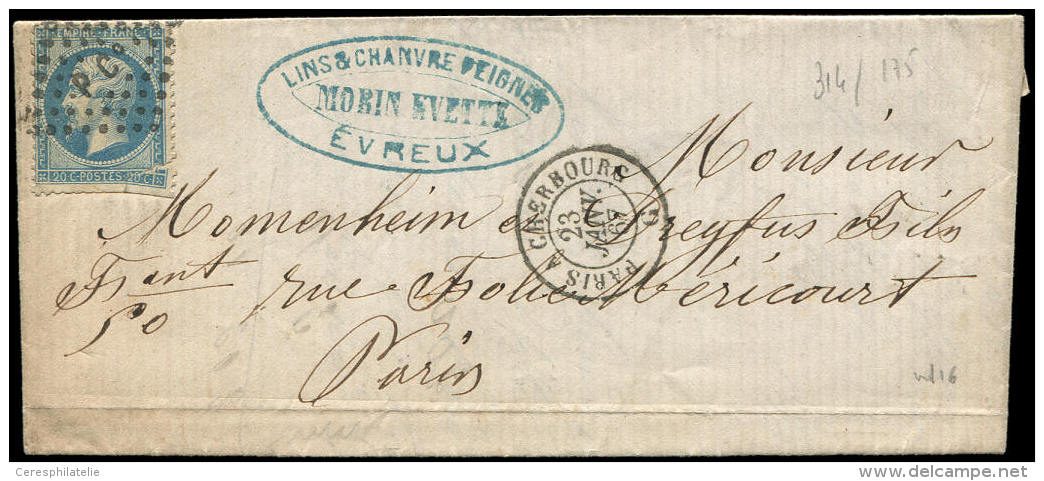 EMPIRE FRANC
P.C.
20 C-POSTES-20 C
LINS & CHANVRE PEIGNÉS
MORIN EVETTE
ÉVREUX
314/175
PARIS A CHERBOURG
23
JANV.
67
Monsieur
Momenheim et Dreyfus Fils
Frant rue Folie Méricourt
50
Paris
Ceresphilatelie
delcampe.net